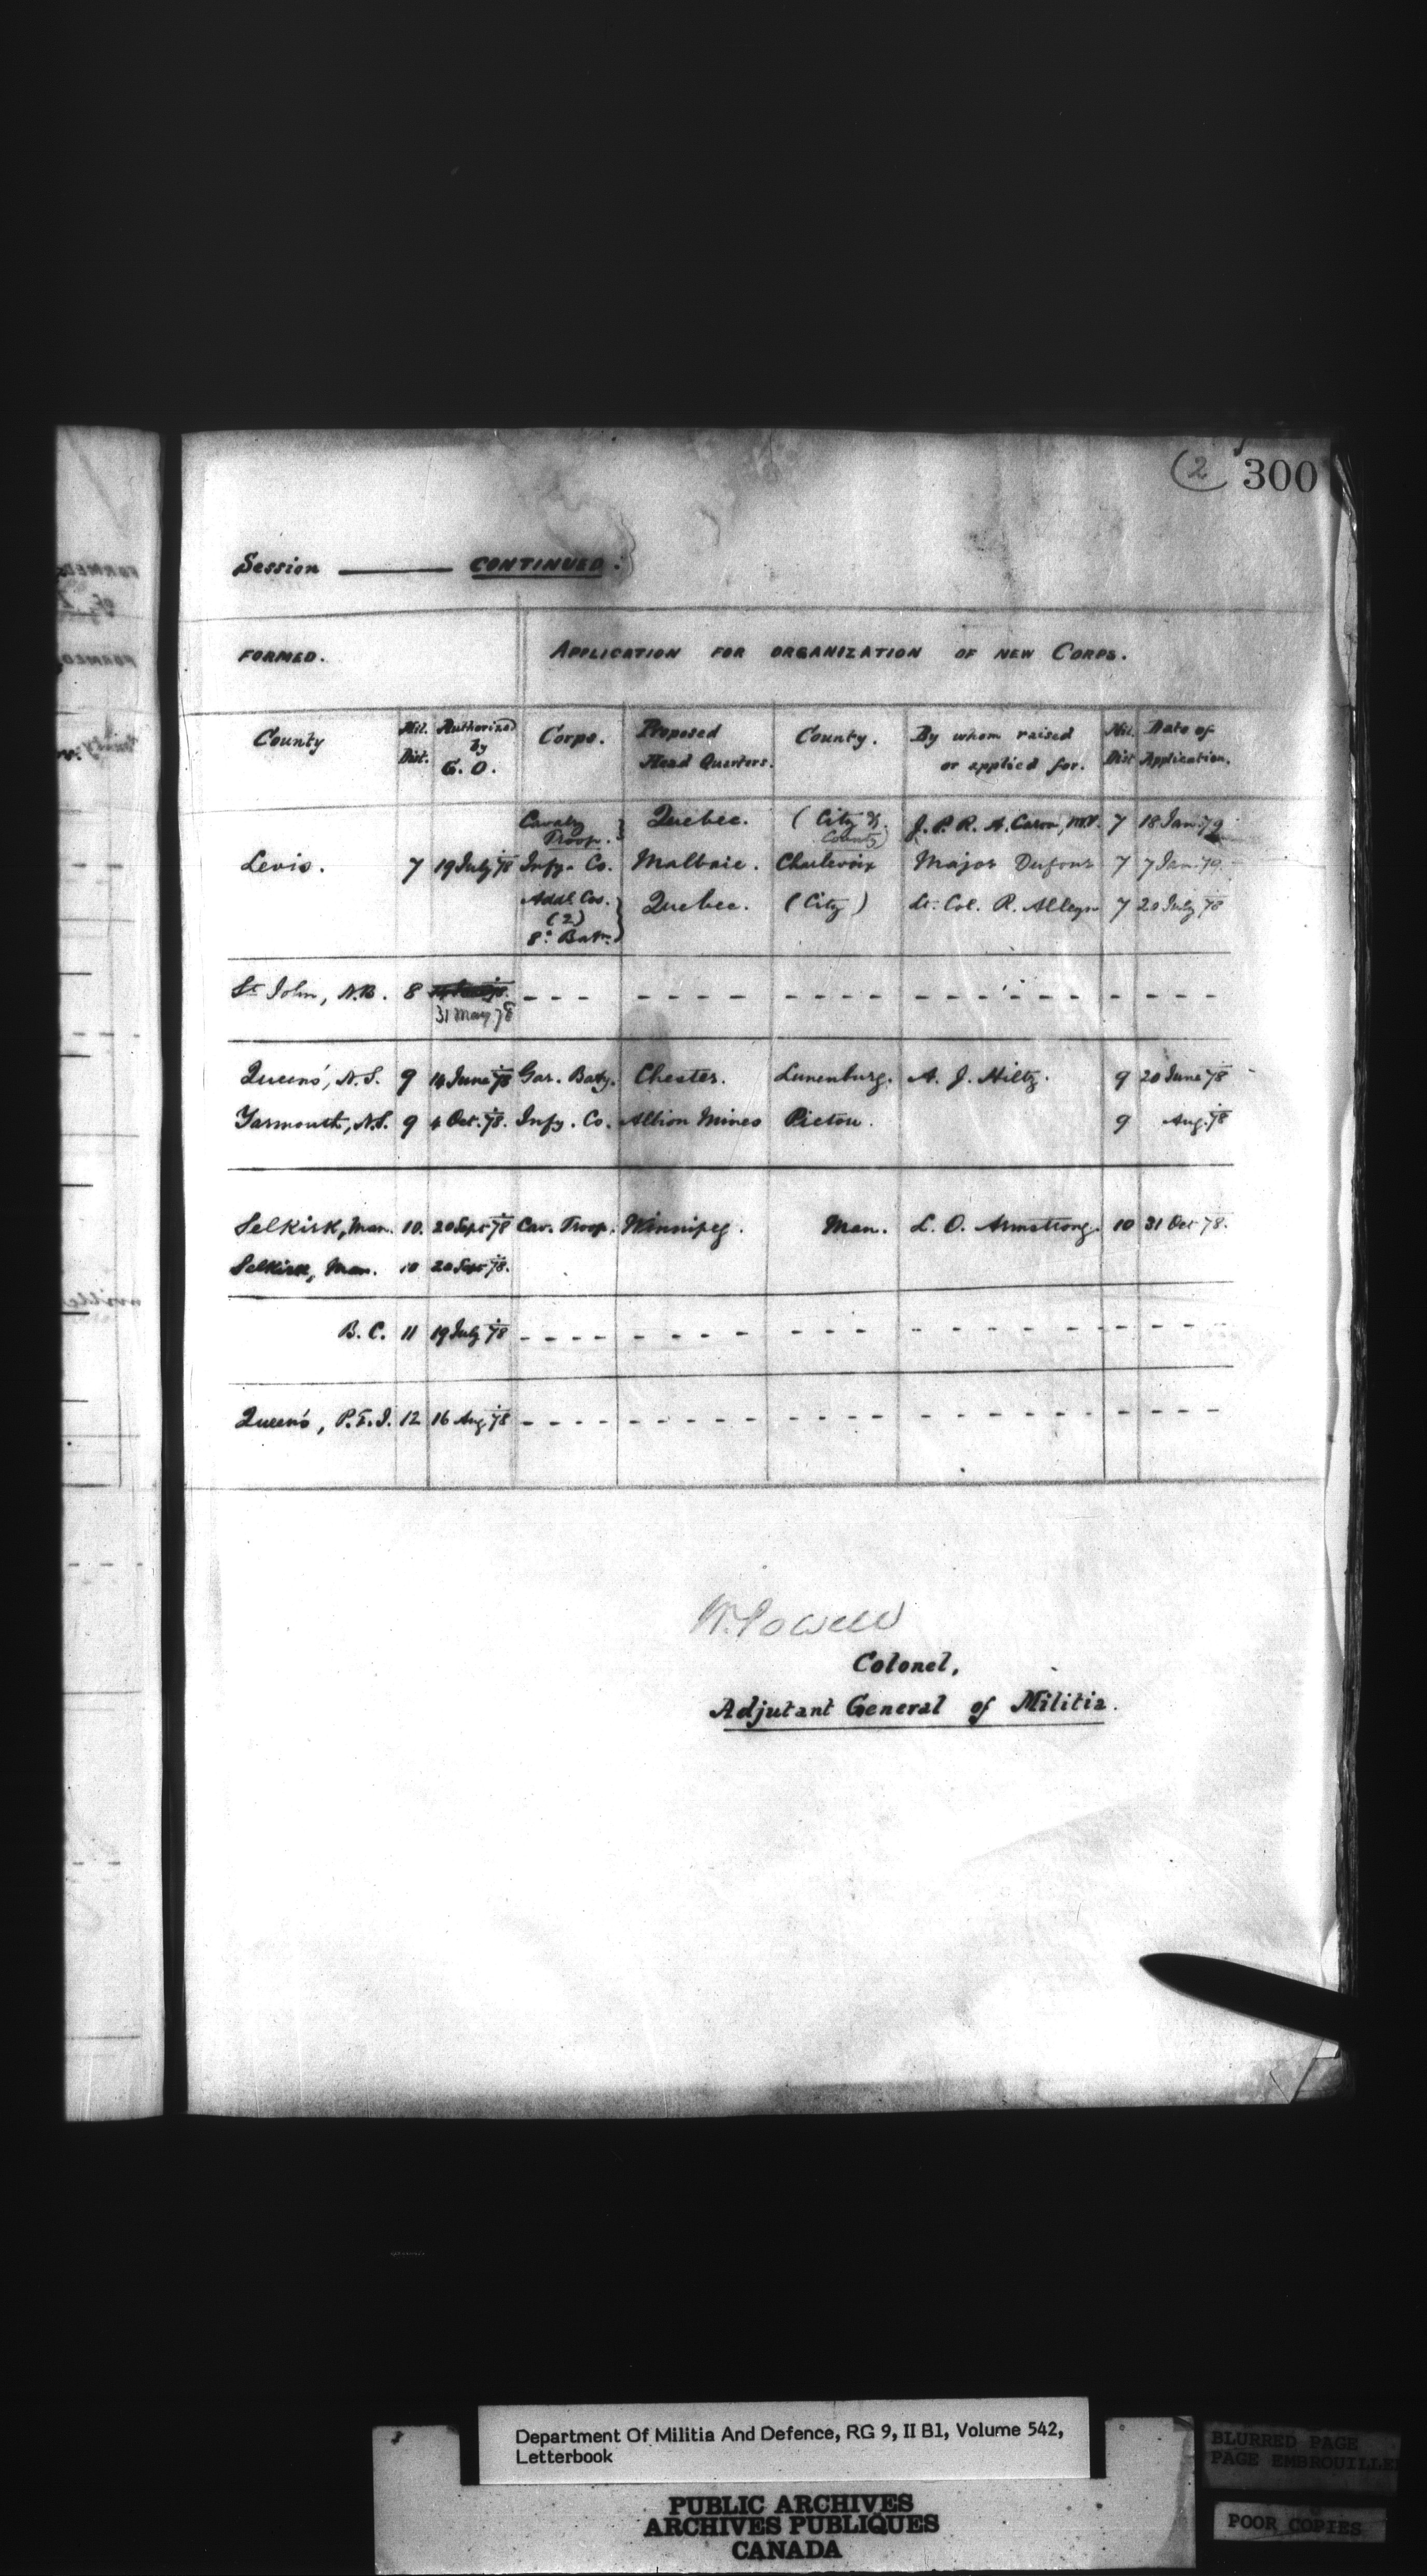 (2 300
Session ——— CONTINUED:
FORMED. APPLICATION FOR ORGANIZATION OF NEW CORPS.
County Mil. Dist. Authorized by G. O. Corps. Proposed Head Quarters. County. By whom raised or applied for. Mil. Dist Date of Application.
Cavalry Troop. } Quebec. (City & County) J. P. R. A. Caron, M.P. 7 18 Jan. 79
Levis. 7 19 July 78 Infy. Co. Malbaie. Charlevoix Major Dufour 7 7 Jan. 79.
Addl. Cos. (2) 8th Batn. } Quebec. (City) Lt. Col. R. Alleyn 7 20 July 78
St John, N.B. 8 31 May 78 - - - - - - - - - - - - - - - - - - - - - -
Queens', N.S. 9 14 June 78 Gar. Baty. Chester. Lunenburg. A. J. Hiltz. 9 20 June 78
Yarmouth, N.S. 9 4 Oct. 78. Infy. Co. Albion Mines Pictou. 9 Aug. 78
Selkirk, Man. 10. 20 Sept 78 Cav. Troop. Winnipeg. Man. L. O. Armstrong. 10 31 Oct 78.
Selkirk, Man. 10 20 Sept 78.
B. C. 11 19 July 78 - - - - - - - - - - - - - - - - - - - - - -
Queen's, P.E.I. 12 16 Aug 78 - - - - - - - - - - - - - - - - - - - - - -
W. Powell
Colonel,
Adjutant General of Militia.
Department Of Militia And Defence, RG 9, II B1, Volume 542,
Letterbook
PUBLIC ARCHIVES
ARCHIVES PUBLIQUES
CANADA
BLURRED PAGE
PAGE EMBROUILLEE
POOR COPIES